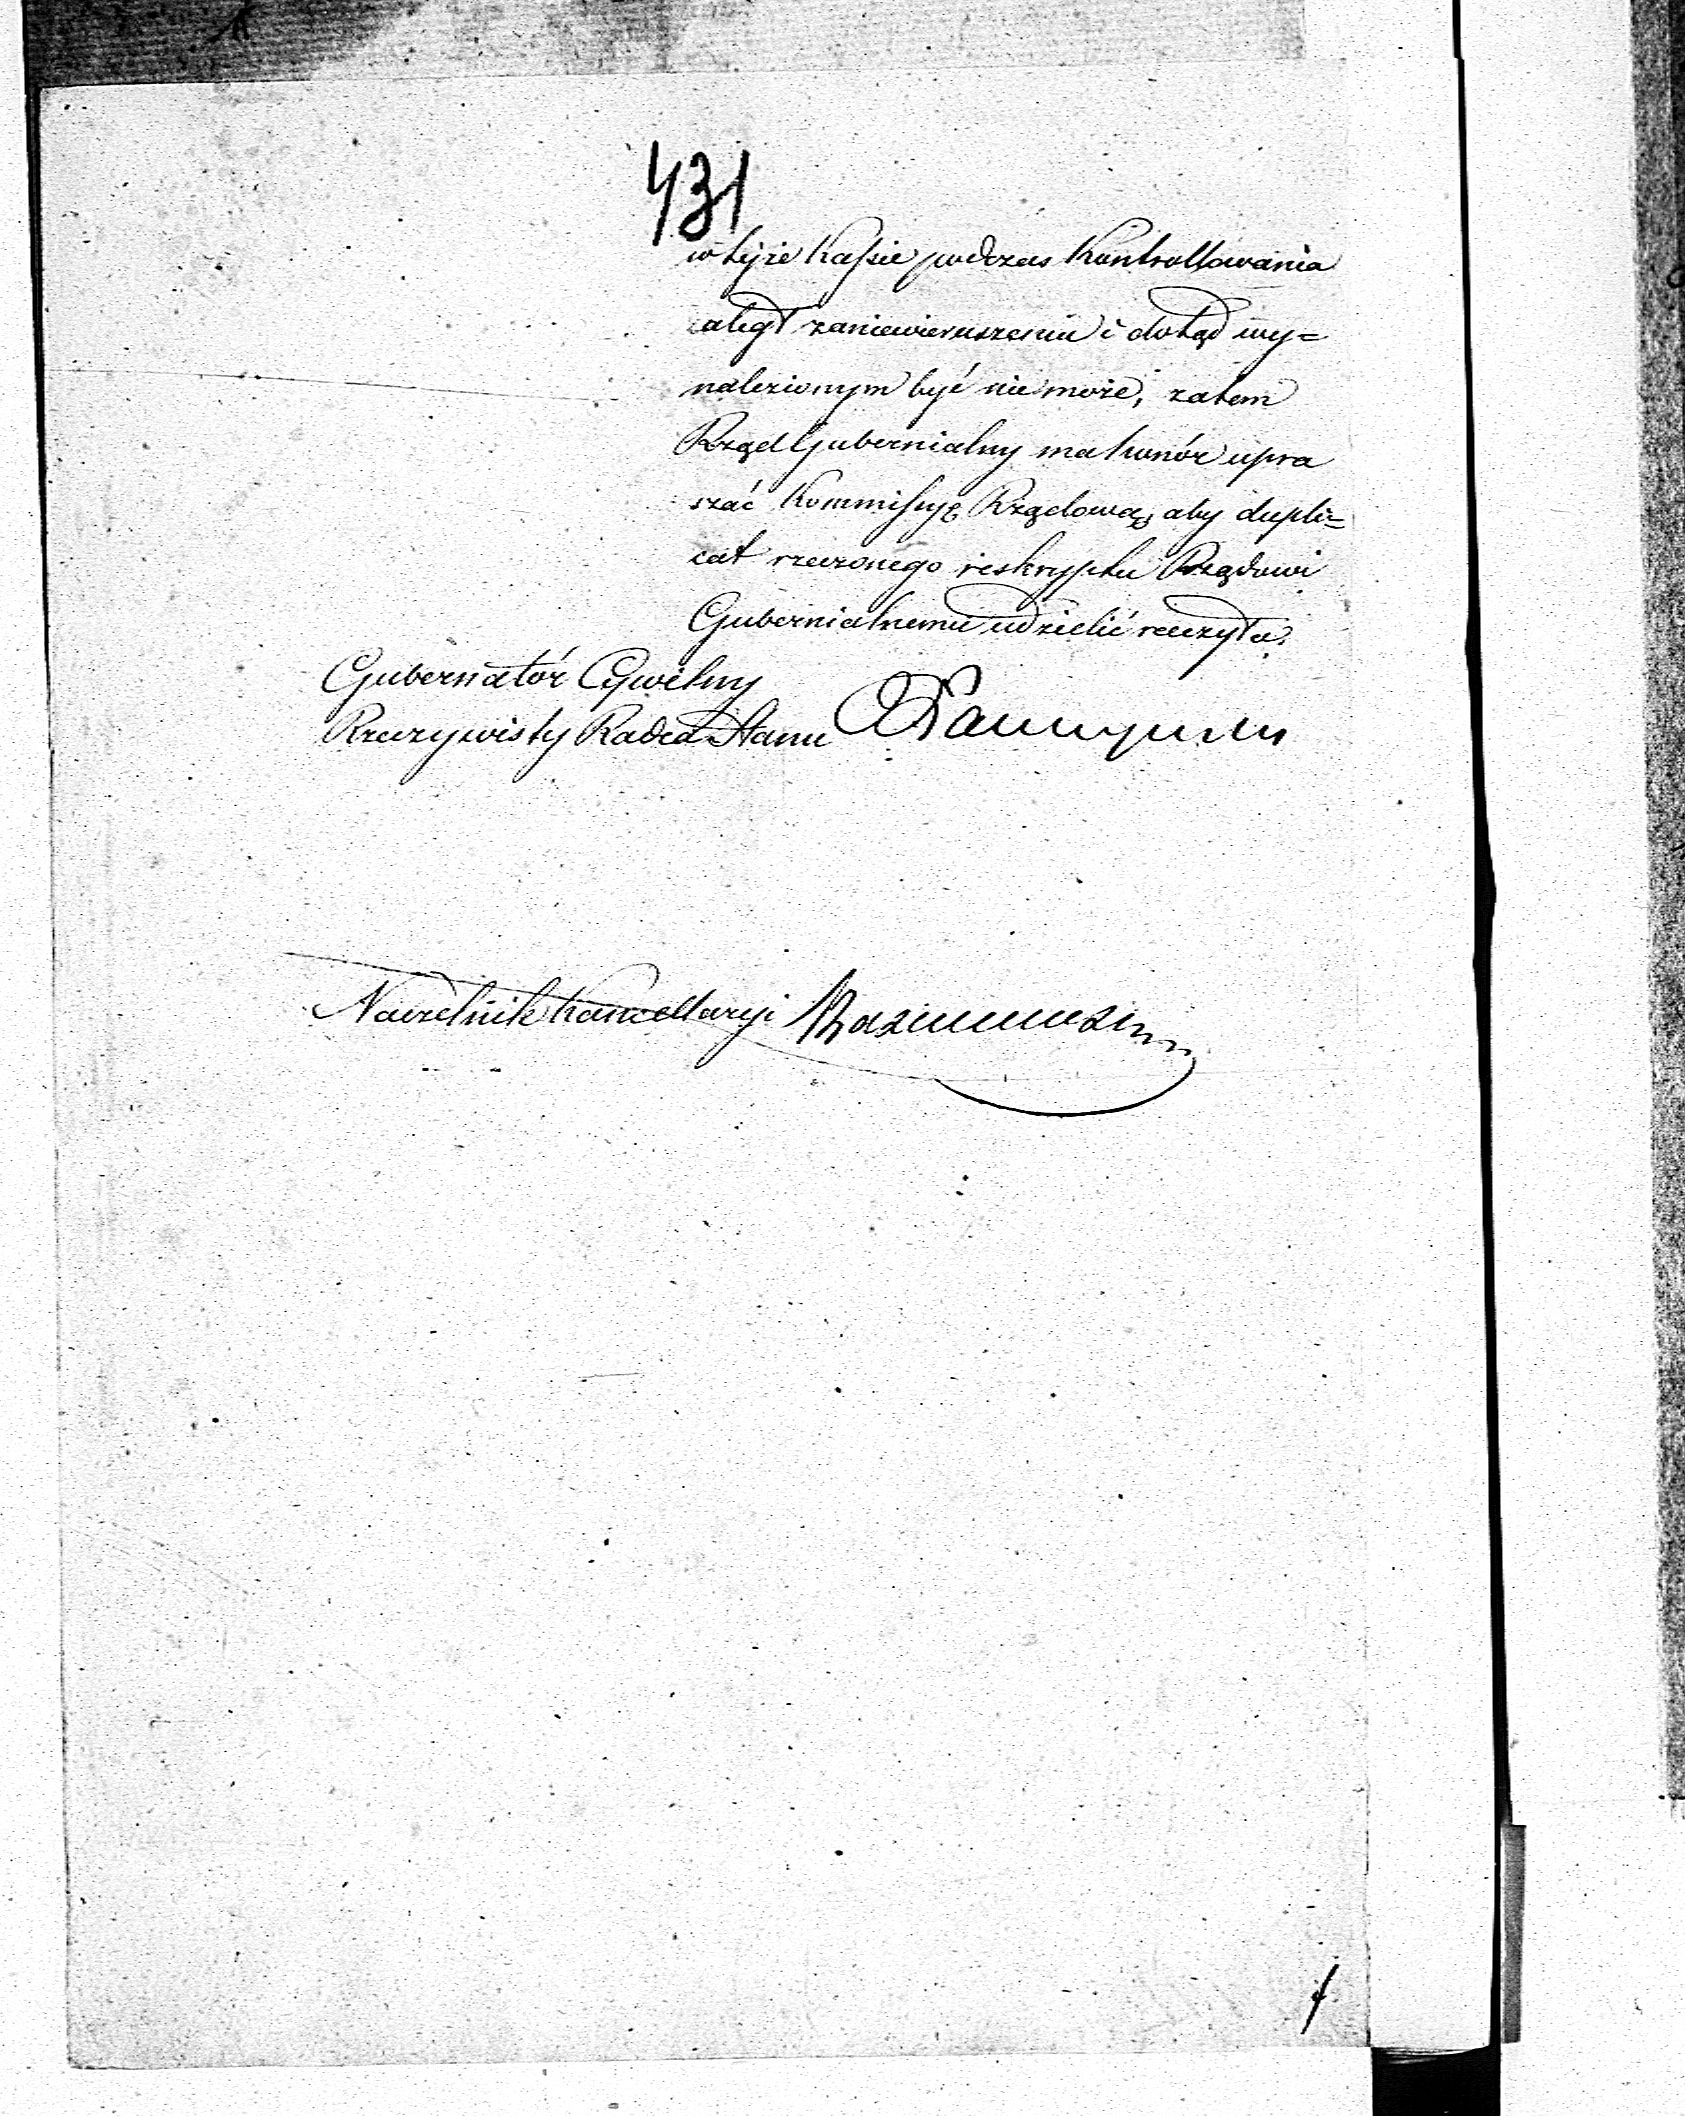 431
w tejże Kassie podczas Kontrollowania
uległ zaniewieruszeniu i dotąd wy=
nalezionym być nie może, zatem
Rząd Gubernialny ma honór upra
szać Kommissyę Rządową, aby dupli=
cat rzeczonego reskryptu Rządowi
Gubernialnemu udzielić raczyła.
Gubernatór Cywilny
Rzeczywisty Radca Stanu
Naczelnik Kancellaryi